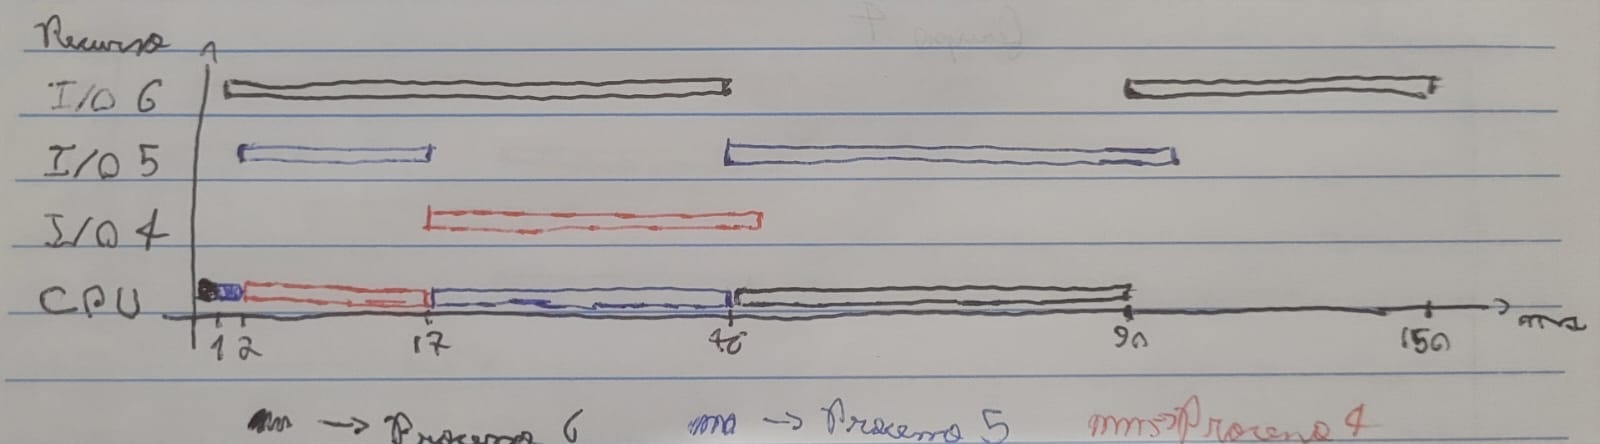 Recurso
I/O 6
I/O 5
I/O 4
CPU
1 2 17 90 150 ms
→ Processo 6 → Processo 5 → Processo 4